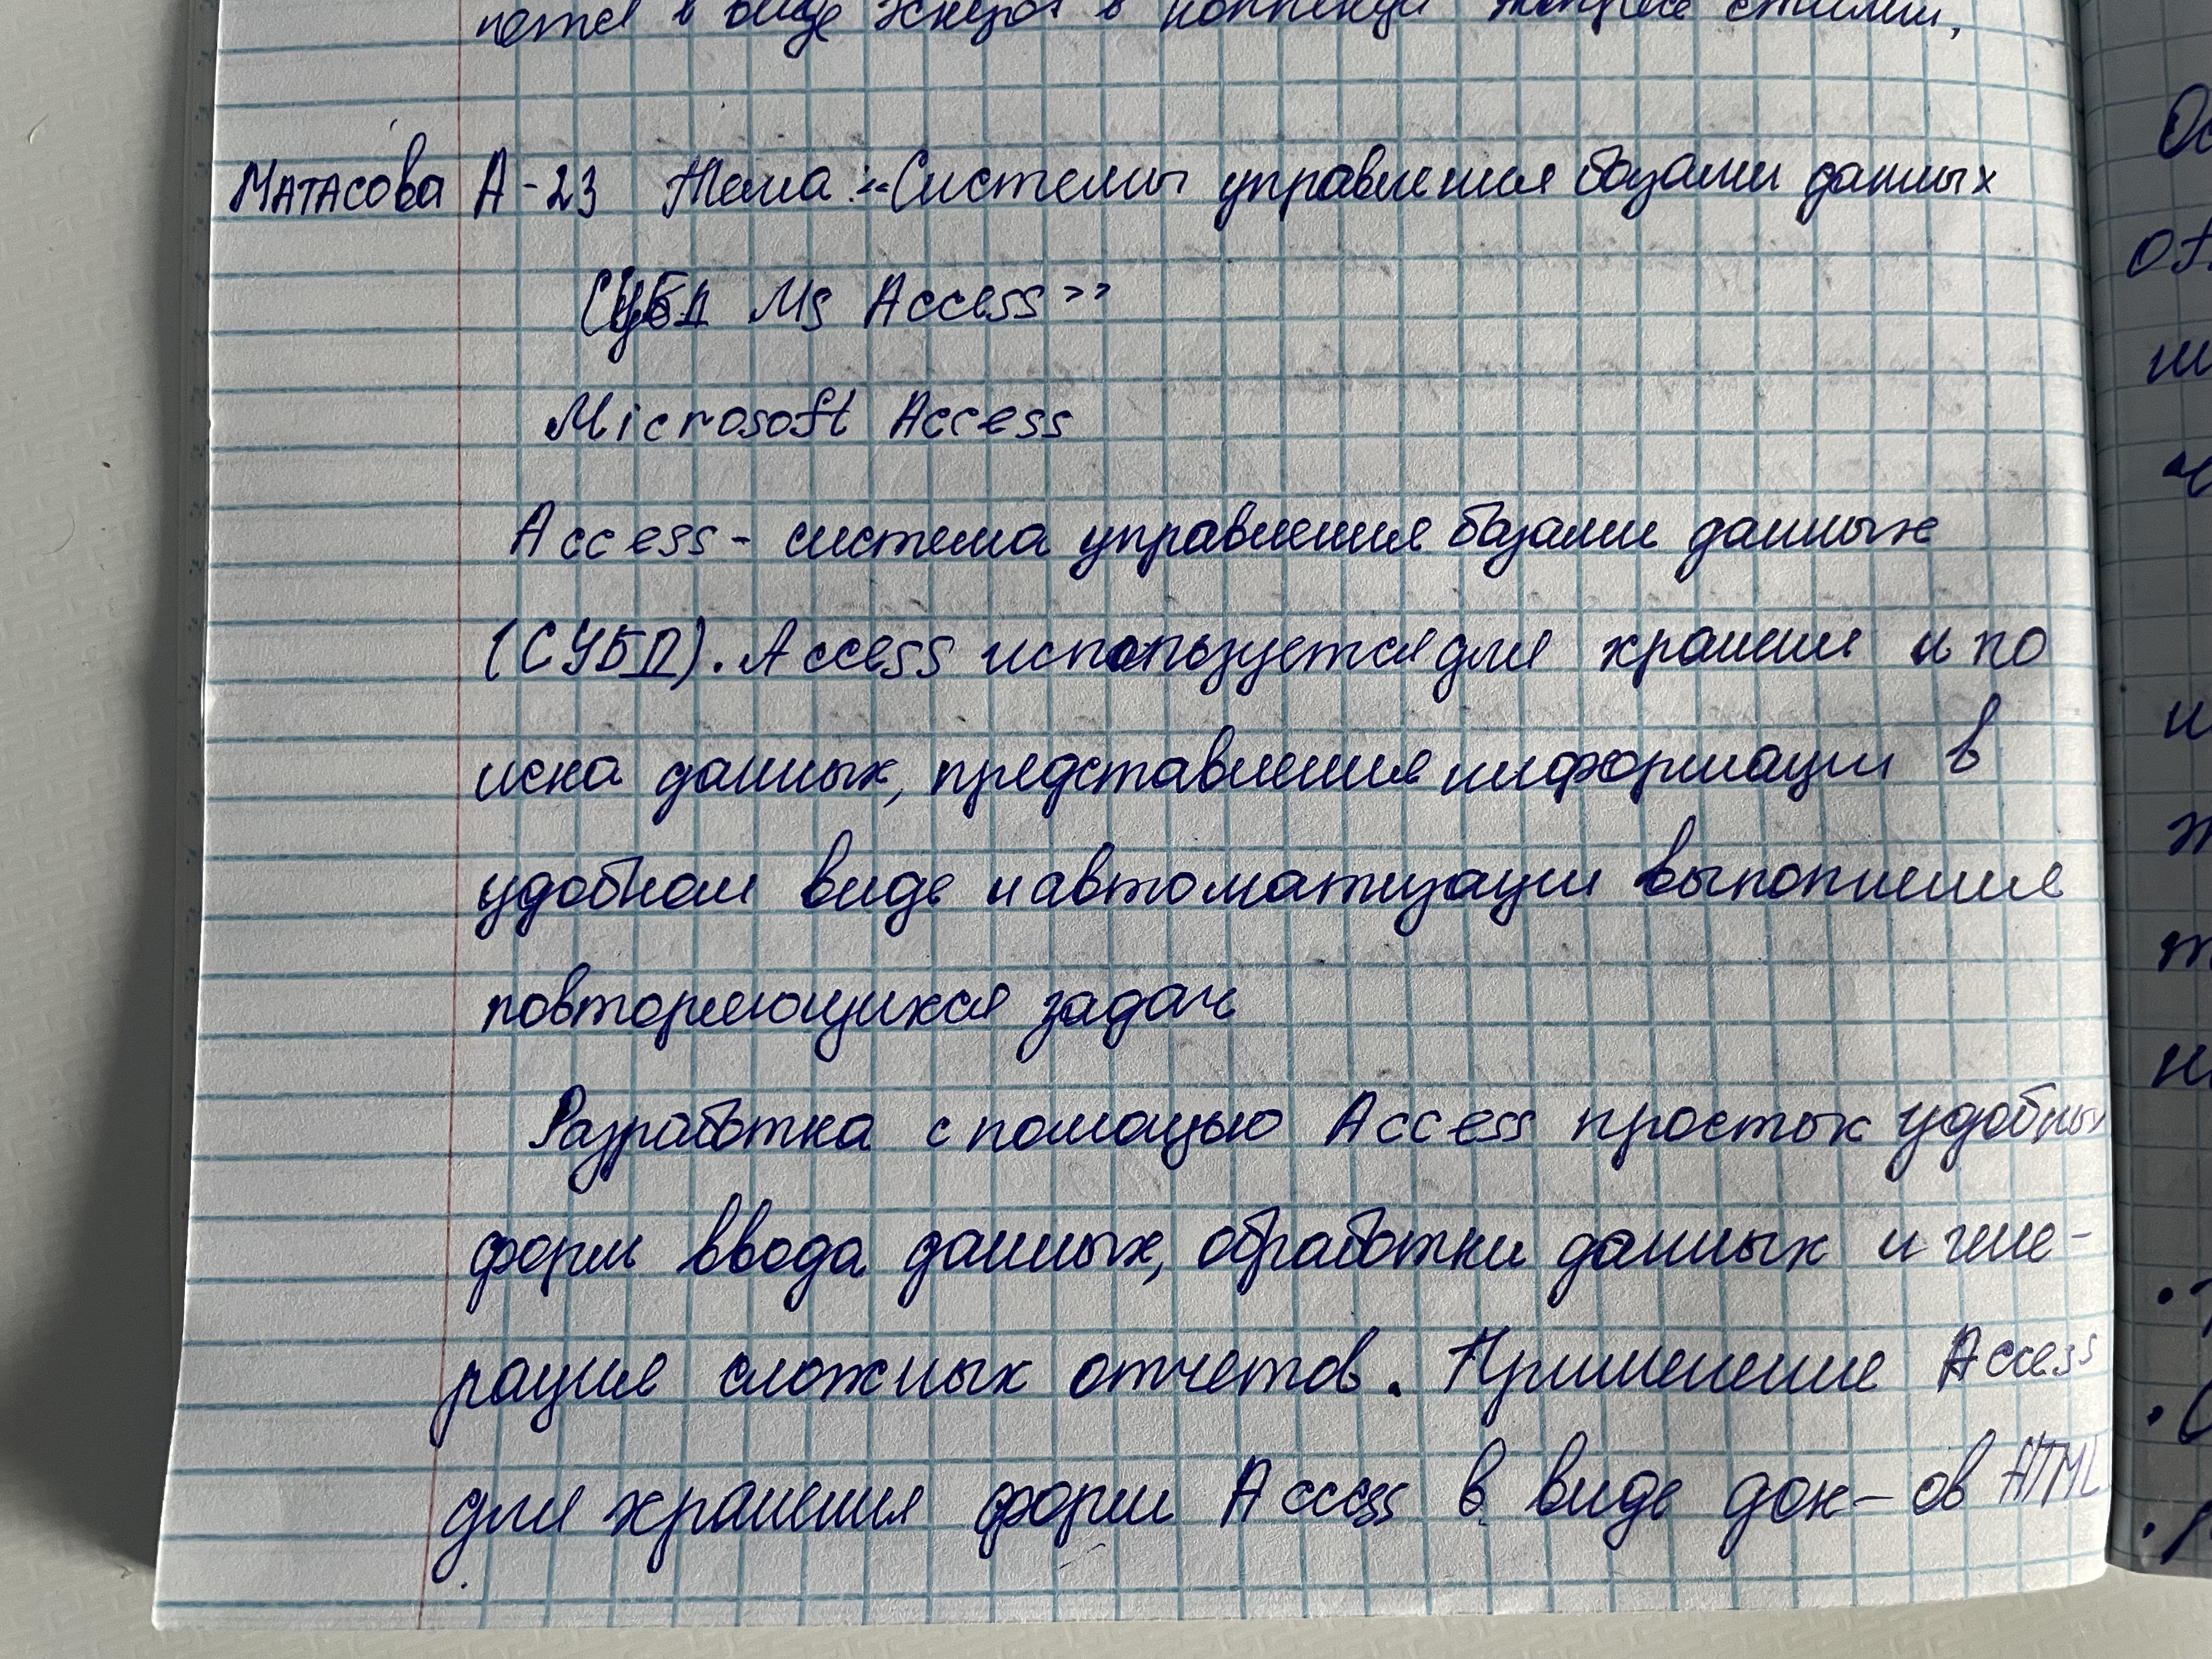 в виде эскизов в коллекции экспресс стилей,
Матасова А-23 Тема: «Системы управления базами данных
СУБД Ms Access»
Microsoft Access
Access - система управления базами данных
(СУБД). Access используется для хранения и по
иска данных, представления информации в
удобном виде и автоматизации выполнения
повторяющихся задач
Разработка с помощью Access простых удобных
форм ввода данных, обработки данных и гене-
рация сложных отчетов. Применение Access
для хранения форм Access в виде док-ов HTML